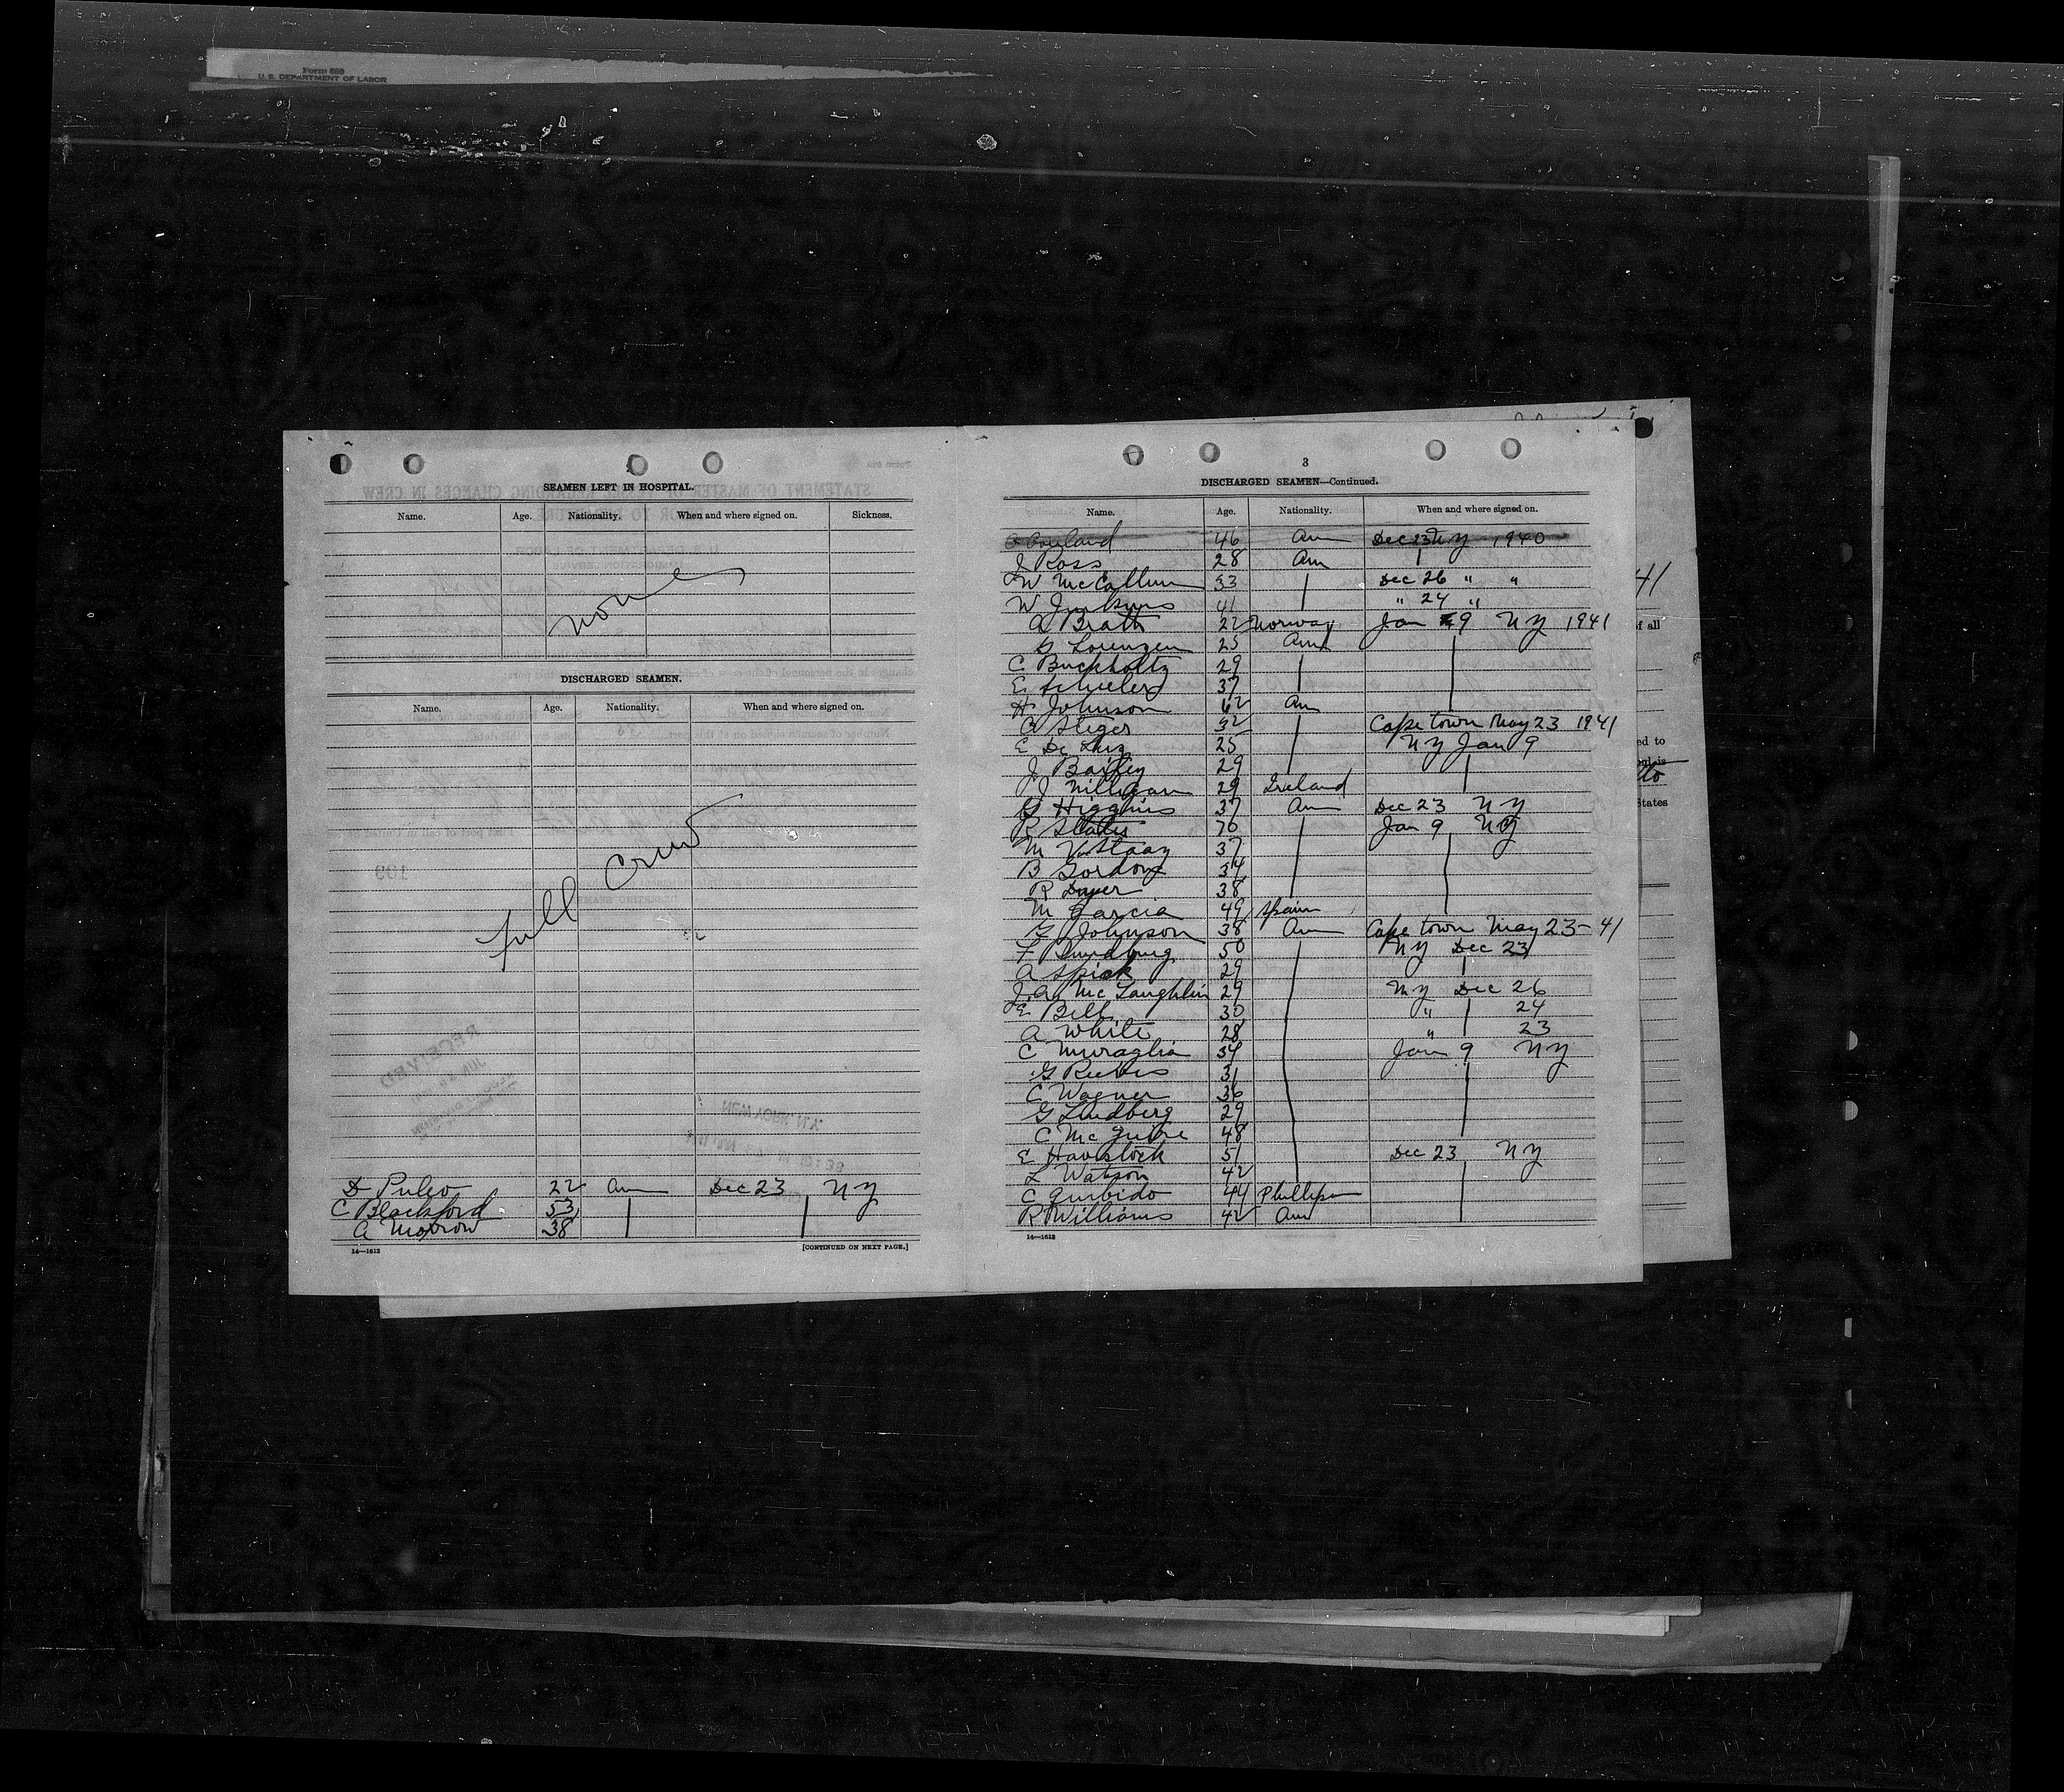 Form 689
U. S. DEPARTMENT OF LABOR
SEAMEN LEFT IN HOSPITAL.
Name. Age. Nationality. When and where signed on. Sickness.
none
DISCHARGED SEAMEN.
Name. Age. Nationality. When and where signed on.
full crew
D Puleo 22 Am Dec 23 NY
C Blackford 53
A Morrow 38
14—1613 [CONTINUED ON NEXT PAGE.]
3
DISCHARGED SEAMEN—Continued.
Name. Age. Nationality. When and where signed on.
46 Am Dec 23 NY 1940
J Ross 28 Am
W McCallum 33 Dec 26 " "
W Jenkins 41 " 24 "
A Brath 22 Norway Jan 9 NY 1941
G Lorenzen 25 Am
C Buckholtz 29
E 37
H Johnson 62 Am
A Steger 32 Cape town May 23 1941
E De Luz 25 NY Jan 9
J Bailey 29
J Milligan 29 Ireland
G Higgins 37 Am Dec 23 NY
R 70 Jan 9 NY
M 37
B Gordon 34
R Dwyer 38
M Garcia 49 Spain
G Johnson 38 Am Cape town May 23-41
F 50 NY Dec 23
A Spick 29
J. A. McLaughlin 29 NY Dec 26
E Bell 30 " 24
A White 28 " 23
C Muraglia 34 Jan 9 NY
G Reeves 31
C Wagner 36
G Lindberg 29
C McGuire 48
E Havistock 51 Dec 23 NY
L Watson 42
C Gurbido 44 Phillipine
R Williams 42 Am
14—1613
41
of all
ed to
States